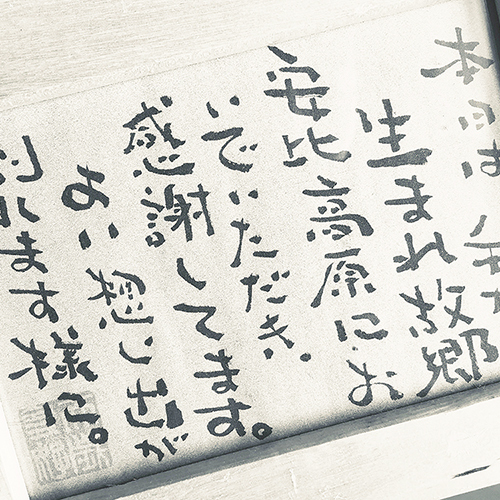 本日は 私の
生まれ故郷
安比高原にお
いでいただき、
感謝してます。
よい想い出が
残ります様に。